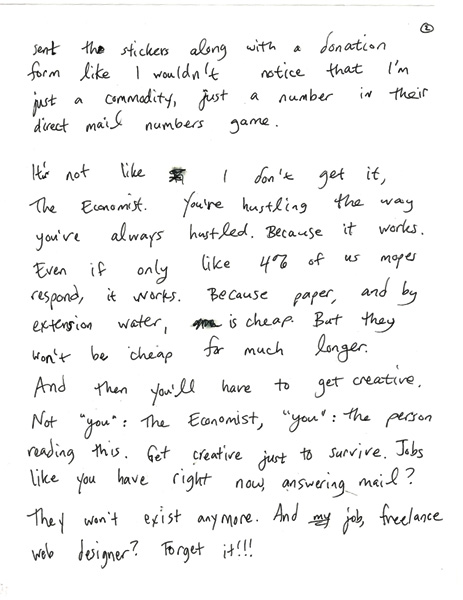 2
sent the stickers along with a donation
form like I wouldn't notice that I'm
just a commodity, just a number in their
direct mail numbers game.
It's not like I don't get it,
The Economist. You're hustling the way
you've always hustled. Because it works.
Even if only like 4% of us mopes
respond, it works. Because paper, and by
extension water, is cheap. But they
won't be cheap for much longer.
And then you'll have to get creative.
Not "you": The Economist, "you": the person
reading this. Get creative just to survive. Jobs
like you have right now, answering mail?
They won't exist anymore. And my job, freelance
web designer? Forget it!!!